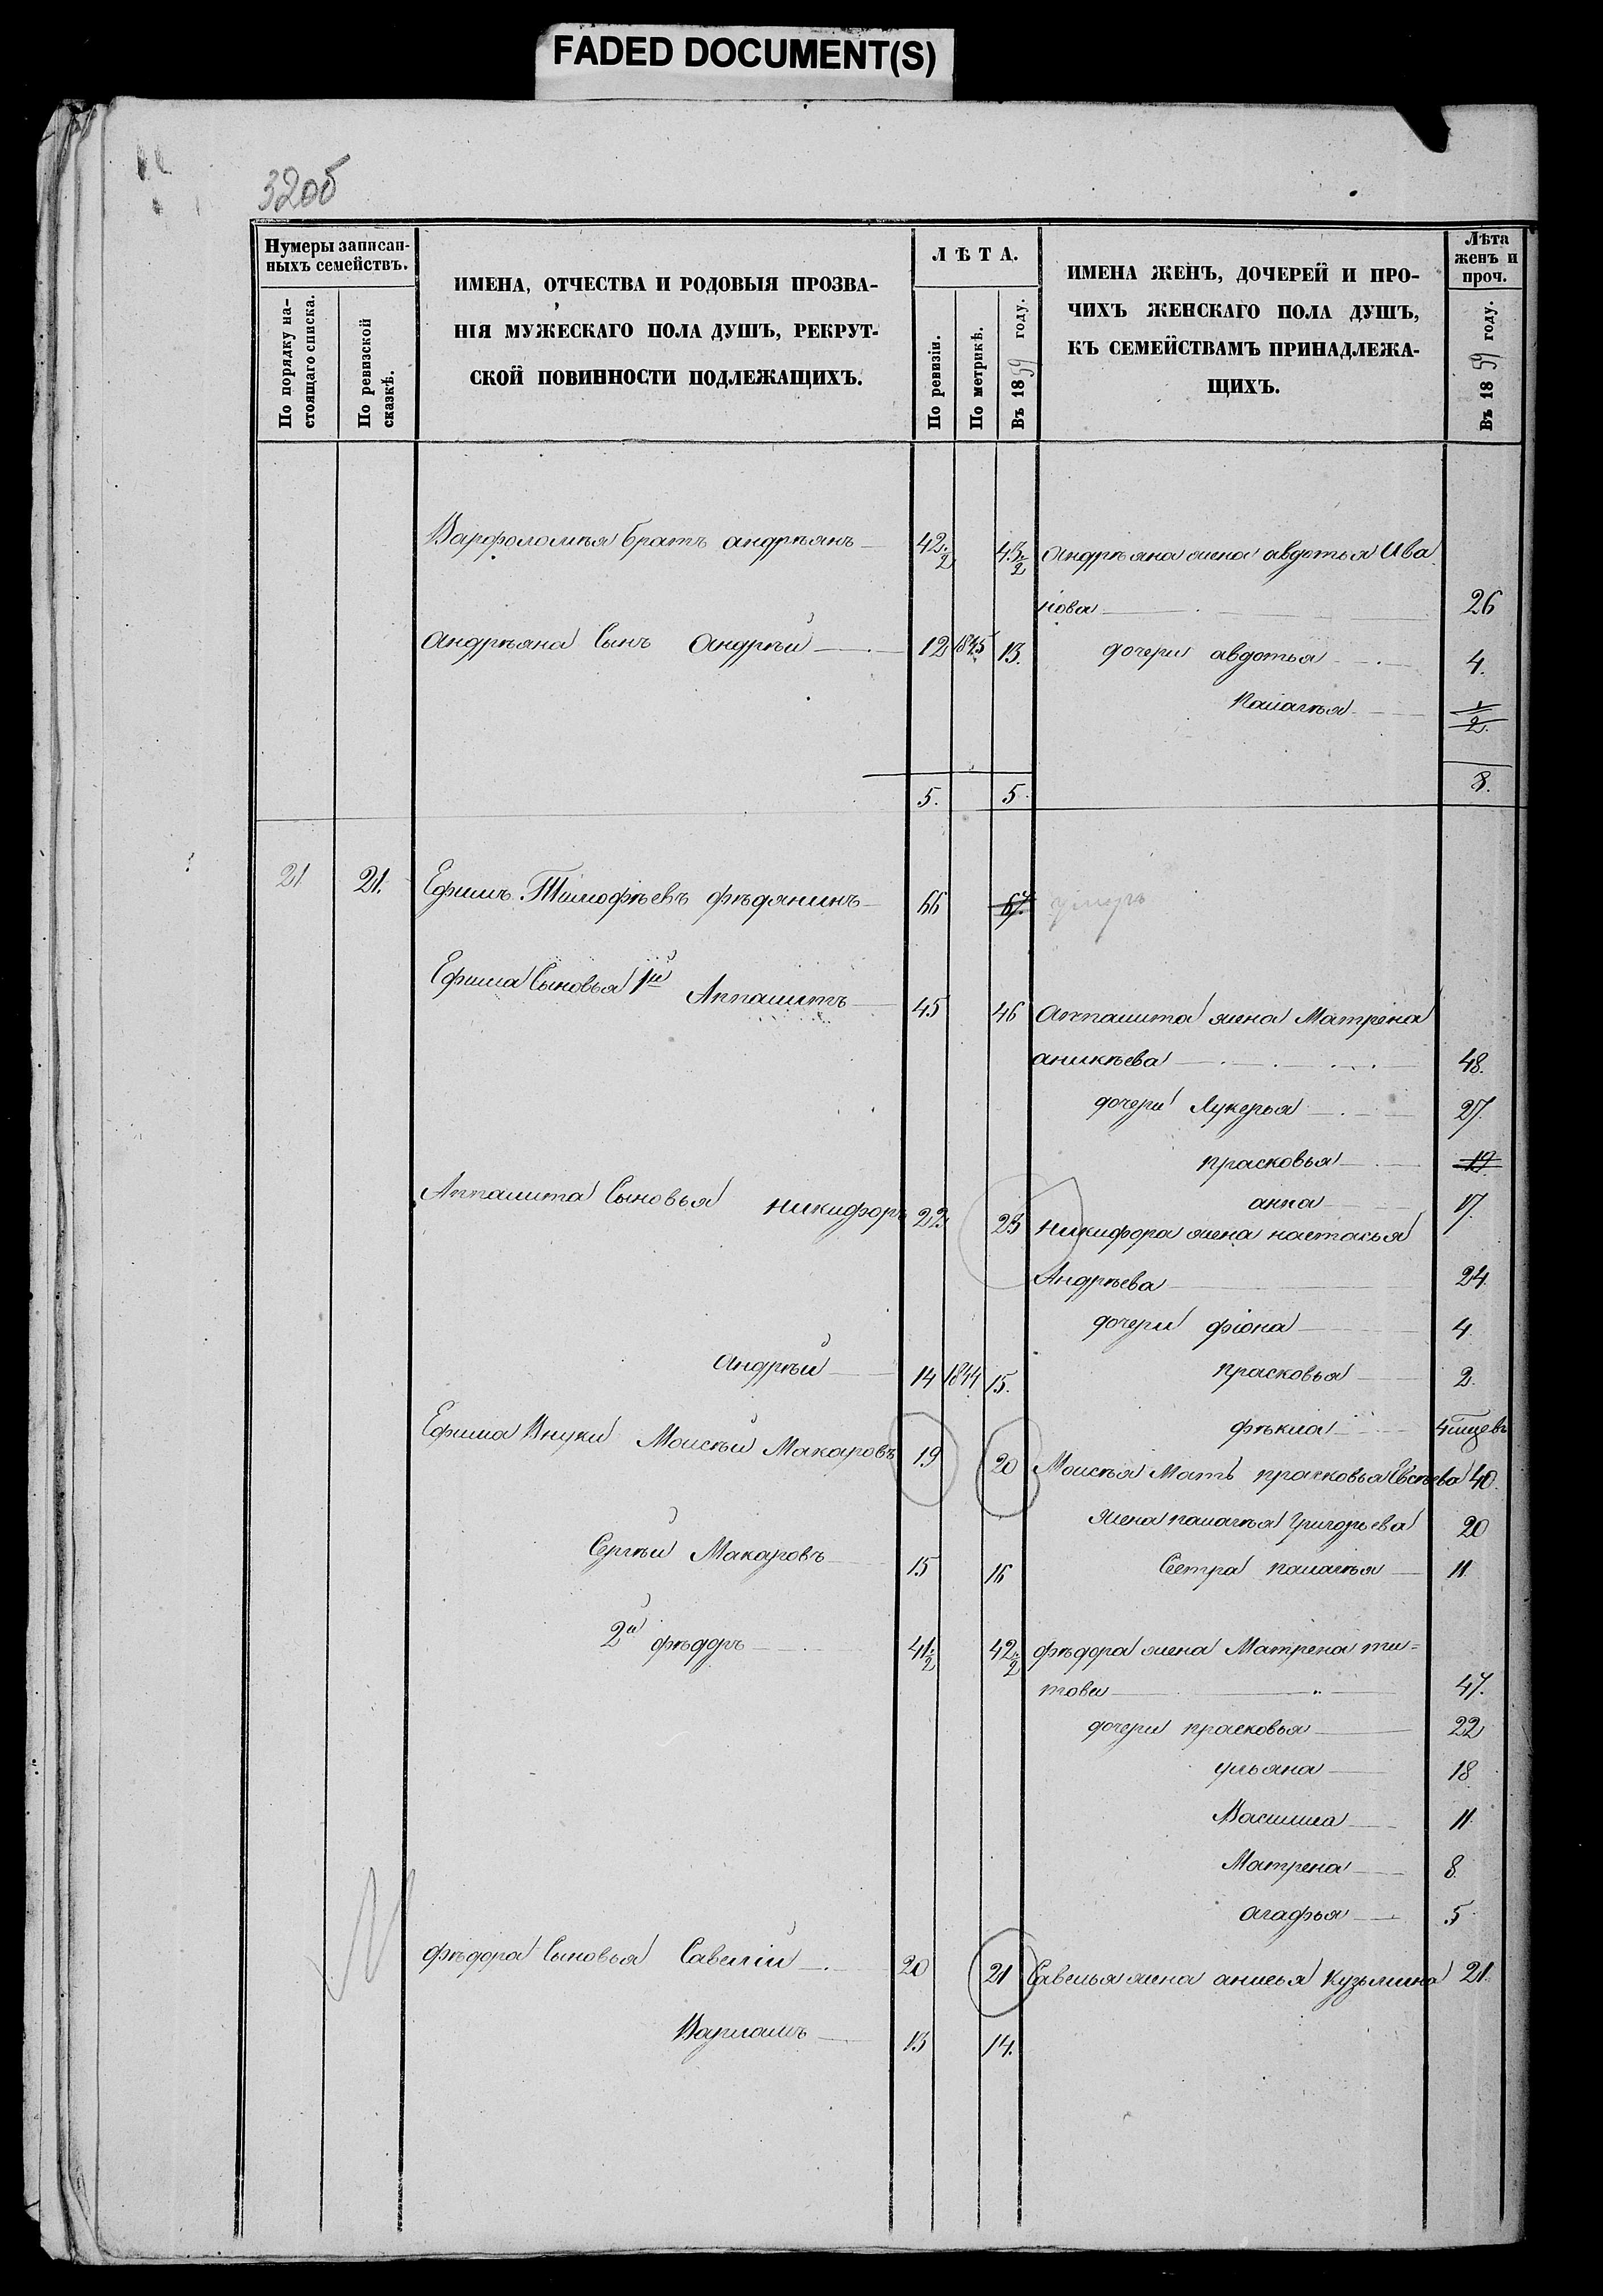 FADED DOCUMENT(S)
32об
Нумеры записан-
ныхъ семействъ.
По порядку на-
стоящаго списка.
По ревизской
сказкѣ.
ИМЕНА, ОТЧЕСТВА И РОДОВЫЯ ПРОЗВА-
НІЯ МУЖЕСКАГО ПОЛА ДУШЪ, РЕКРУТ-
СКОЙ ПОВИННОСТИ ПОДЛЕЖАЩИХЪ.
ЛѢТА.
По ревизіи.
По метрикѣ.
Въ 1859 году.
ИМЕНА ЖЕНЪ, ДОЧЕРЕЙ И ПРО-
ЧИХЪ ЖЕНСКАГО ПОЛА ДУШЪ,
КЪ СЕМЕЙСТВАМЪ ПРИНАДЛЕЖА-
ЩИХЪ.
Лѣта
женъ и
проч.
Въ 1859 году.
Варфоломѣя братъ андрѣянъ 42.2 43.2 андрѣяна жена авдотья Ива
нова 26
андрѣяна Сынъ Андрѣй 12 1845 13. дочери авдотья 4.
палагѣя 1/2.
5. 5. 8.
21 21. Ефимъ Тимофѣевъ фѣдянинъ 66 67. умеръ
Ефима Сыновья 1й Апполитъ 45 46 Апполита жена Матрена
аникѣева 48.
дочери Лукерья 27.
прасковья 19
анна 17.
Апполита Сыновья никифоръ 22 23 никифора жена настасья
Андрѣева 24
дочери фіона 4
андрѣй 14 1844 15. прасковья 2.
фѣкла
Ефима Внуки Моисѣй Макаровъ 19 20 Моисѣя Мать прасковья Евсѣева 40.
жена палагѣя Григорьева 20
Сергѣй Макаровъ 15 16 Сестра палагѣя 11
2й фѣдоръ 41.2 42.2 фѣдора жена Матрена ти=
това 47.
дочери прасковья 22
ульяна 18
Василиса 11
Матрена 8.
агафья 5
фѣдора Сыновья Савелій 20 21 Савелья жена анисья Кузьмина 21.
Варламъ 13 14.